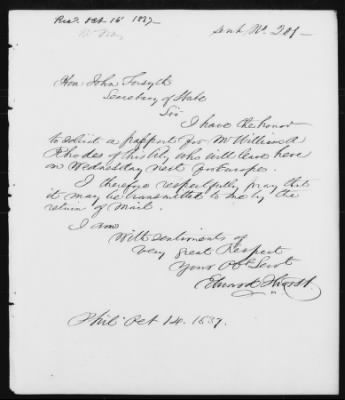 Recd Oct 16 1837
Sent No. 201
Hon. John Forsyth
Secretary of State
Sir
I have the honor
to solicit a passport for Mr William A
Rhodes of this City who will leave here
on Wednesday next for Europe.
I therefore respectfully pray that
it may be transmitted to me by the
return of Mail.
I am
With sentiments of
very great Respect
Your Obt Servt
Edward
Phil: Oct 14. 1837.